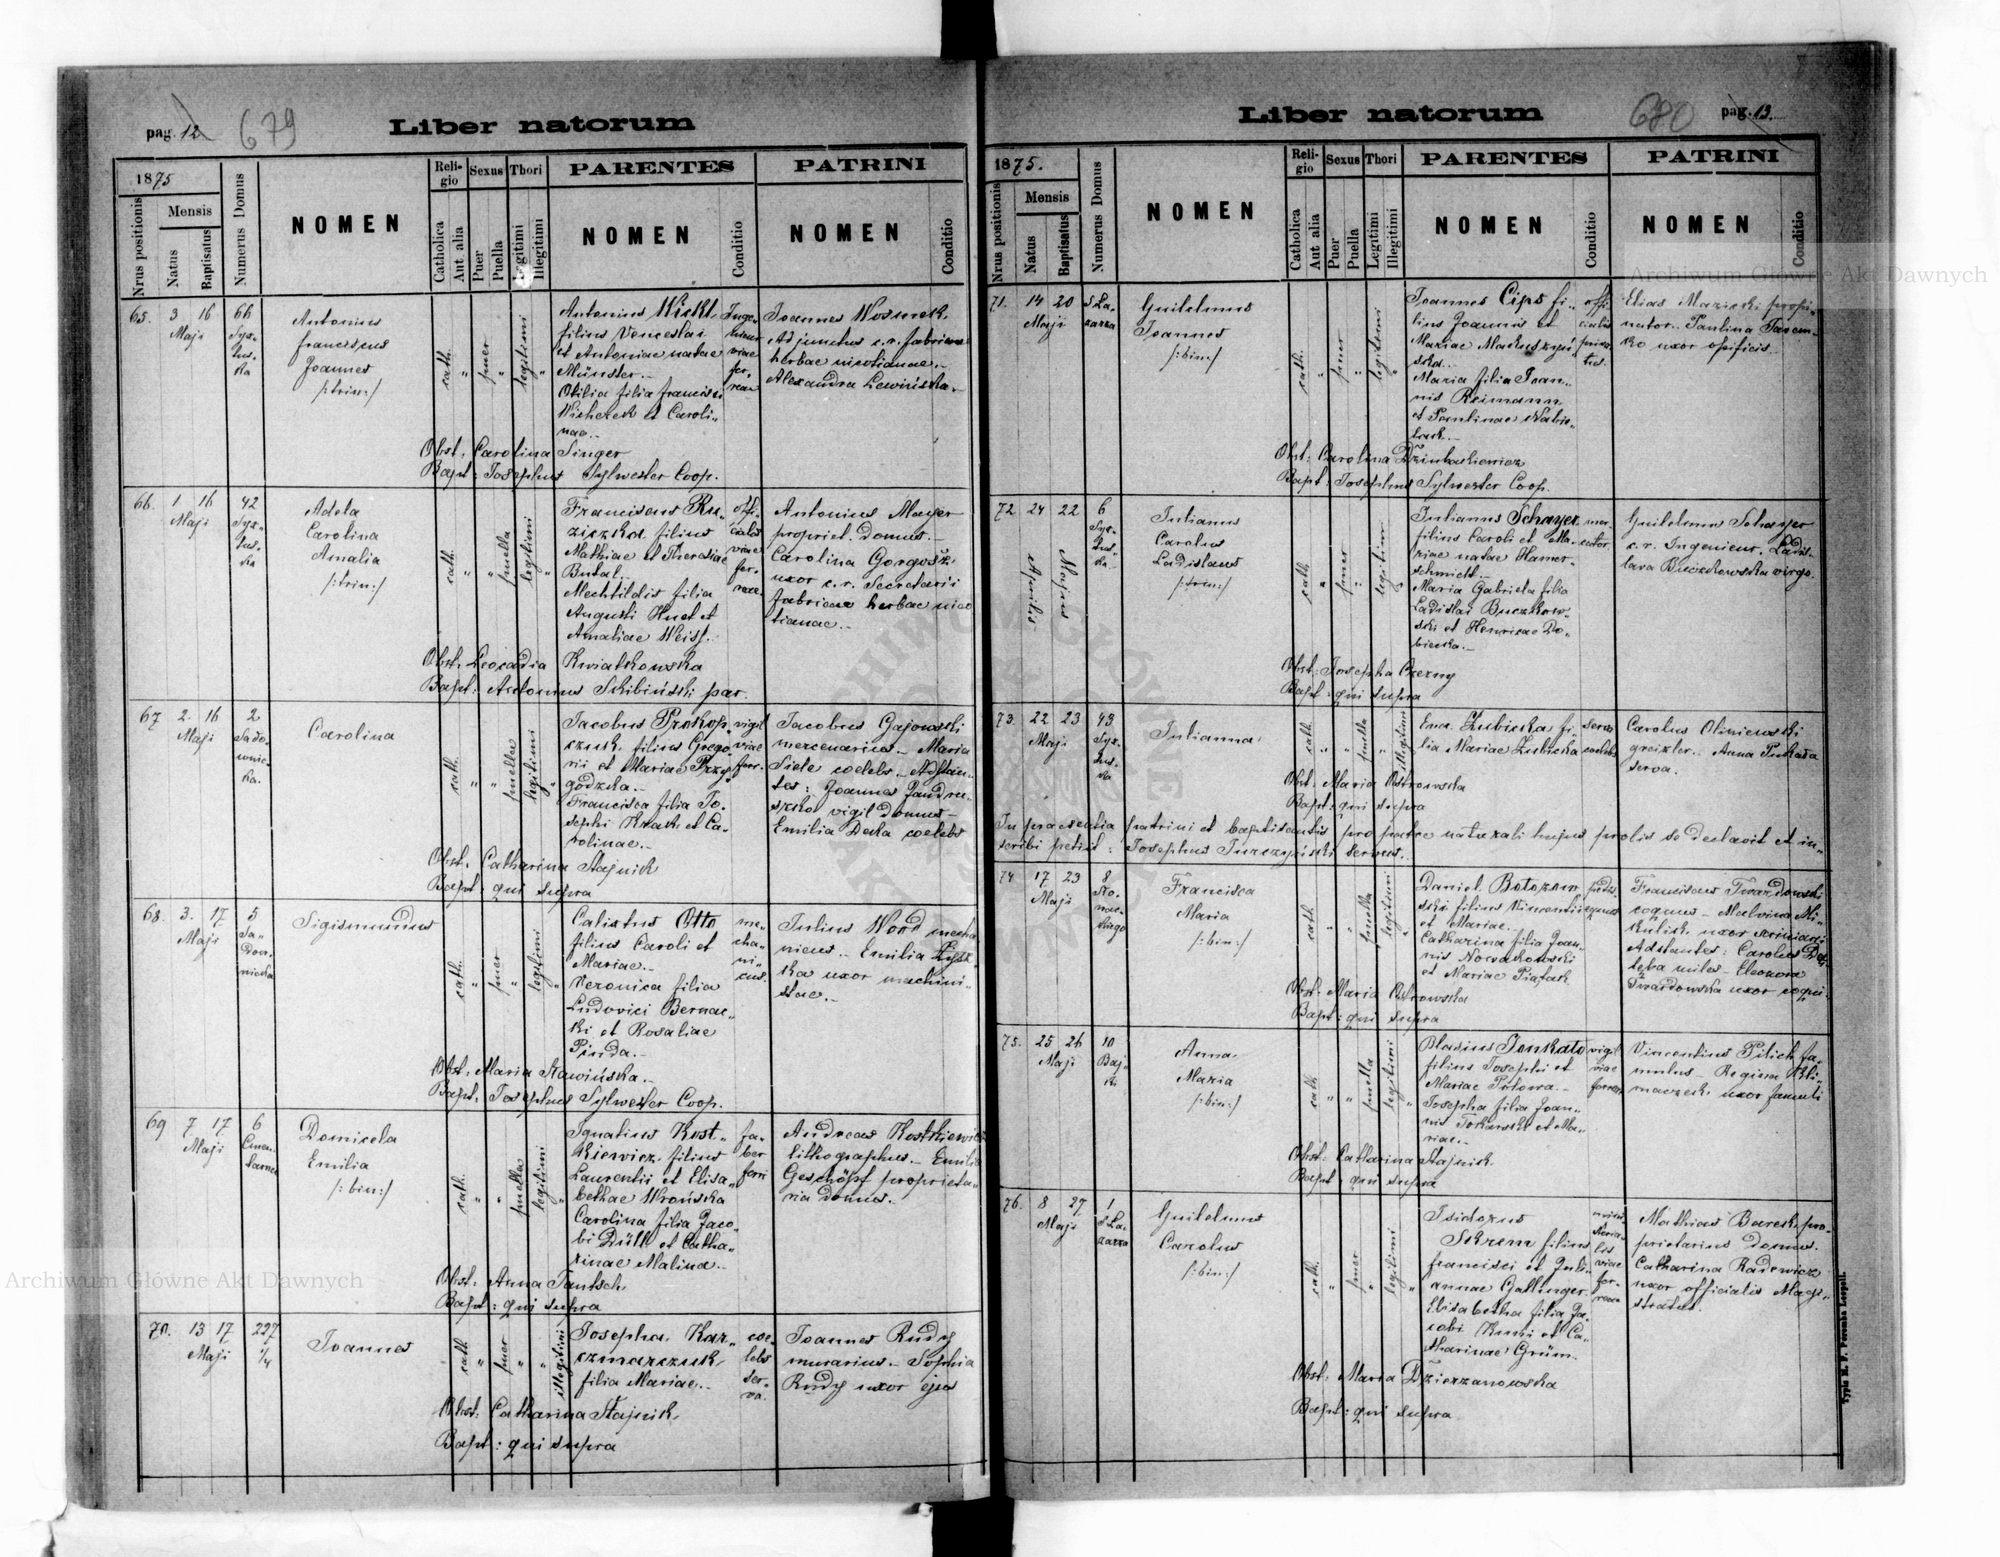 pag. 12
679
Liber natorum
1875
Nrus positionis
Mensis
Natus
Baptisatus
Numerus Domus
NOMEN
Religio
Catholica
Aut alia
Sexus
Puer
Puella
Thori
Legitimi
Illegitimi
PARENTES
NOMEN
Conditio
PATRINI
NOMEN
Conditio
65. 3 16
Maji
66
Antonius
Franciscus
Joannes
/:trin:/
cath.
puer
legitimi
Antonius Wickl
filius Venceslai
et Antoniae natae
Münster.-
Otilia filia Francisci
Wicherek et Caroli-
nae.-
Joannes Wosmek
Adjunctus c.r. fabricae
herbae nicotianae.-
Alexandra Lewińska.-
Obst. Carolina Singer
Bapt: Josephus Sylwester Coop.
66. 1 16
Maji
42
Adela
Carolina
Amalia
/:trin:/
cath.
puella
legitimi
Franciscus Ru-
ziczka filius
Mathiae et Theresiae
Butal.-
Mechtildis filia
Augusti Huet et
Amaliae Weiss.
offi-
cialis
viae
fer-
reae.
Antonius Mayer
propriet. Domus.-
Carolina Gorgosz
uxor c.r. Secretarii
fabricae herbae nico
tianae.-
Obst. Leocadia Kwiatkowska
Bapt: Antonius Skibiński par.
67 2. 16
Maji
2
Sado-
wnic-
ka.
Carolina
cath.
puella
legitimi
Jacobus Prokop-
czuk filius Grego
rii et Mariae Przy
godzka.-
Francisca filia Jo-
sephi Krak et Ca-
rolinae.-
vigil
viae
ferr.
Jacobus Gajowski
mercenarius.- Maria
Siele coelebs.- Adstan-
tes: Joannes Jandru-
szko vigil domus-
Emilia Deka coelebs
Obst. Catharina Stajnik
Bapt: qui supra
68. 3. 17
Maji
5
Sa-
Dow-
nicka
Sigismundus
cath.
puer
legitimi
Calistus Otto
filius Caroli et
Mariae.-
Veronica filia
Ludovici Bernac-
ki et Rosaliae
Pinda.-
me-
cha-
ni-
cus.
Julius Word mecha
nicus.. Emilia
ka uxor machini-
stae.-
Obst. Maria Kawińska.-
Bapt. Josephus Sylwester Coop.
69 7 17
Maji
6
Cmen-
tarna
Domicela
Emilia
/:bin:/
cath.
puella
legitimi
Ignatius Kost-
kiewicz filius
Laurentii et Elisa-
bethae Wrońska
Carolina filia Jaco-
bi Düll et Catha-
rinae Malina.-
fa-
ber
ferri
Andreas Kostkiewicz
lithographus.- Emilia
Geschöpf proprieta-
ria domus.
Obst. Anna Jantsch
Bapt: qui supra
70. 13 17
Maji
227
1/4
Joannes
cath
puer
illegitimi
Josepha Kar-
czmarczuk
filia Mariae..
coe-
lebs
ser-
va.
Joannes Rudy
murarius.- Sophia
Rudy uxor ejus
Obst. Catharina Stajnik.
Bapt: qui supra
Liber natorum
680
pag. 13.
1875.
Nrus positionis
Mensis
Natus
Baptisatus
Numerus Domus
NOMEN
Religio
Catholica
Aut alia
Sexus
Puer
Puella
Thori
Legitimi
Illegitimi
PARENTES
NOMEN
Conditio
PATRINI
NOMEN
Conditio
71. 14 20
Maji
S La-
zarra
Guilelmus
Joannes
/:bin:/
cath.
puer
legitimi
Joannes Cips fi-
lius Joannis et
Mariae Matuszyń
ska..
Maria filia Joan-
nis Reimann
et Paulinae
offi-
cialis
priva-
tus.
Elias Mazicki propi-
nator. Paulina Tarcin-
ko uxor opificis..
Obst: Carolina
Bapt: Josephus Sylwester Coop.
72. 24 22
Aprilis
Majus
6
Julianus
Carolus
Ladislaus
/:trin:/
cath
puer
legitimi
Julianus Schayer
filius Caroli et Ma-
riae natae Hamer-
schmidt.-
Maria Gabriela filia
Ladislai Buczkow-
ski et Henricae Do-
biecka.-
mer-
cator
Guilelmus Schayer
c.r. Ingenieur. Ladis-
lava Buczkowska virgo.
Obst: Josepha Czerny
Bapt: qui supra
73. 22 23
Maji
43
Julianna
cath.
puella
illegitimi
Eva Zubicka fi-
lia Mariae Zubicka
serva
coelebs
Carolus Oliniewski
greizler.. Anna Pukada
serva.
Obst. Maria Ostrowska
Bapt: qui supra
In praesentia patrini et baptisantis pro patre naturali hujus prolis se declavit et in-
scribi petiit: Josephus Turczyński servus..
74. 17 23
Maji
8
Sło-
nec-
znego
Francisca
Maria
/:bin:/
cath
puella
legitimi
Daniel Botozow
ski filius Vincentii
et Mariae.
Catharina filia Joan-
nis Nowakowski
et Mariae Piątek
Franciscus Twardowski
coquus - Malvina Mi-
kulisk uxor scriniarii
Adstantes: Carolus Do-
łęba miles - Eleonora
Twardowska uxor coqui.
Obst. Maria Ostrowska
Bapt: qui supra
75. 25 26
Maji
10
Baj-
ki
Anna
Maria
/:bin:/
cath
puella
legitimi
Blasius Jonkato
filius Josephi et
Mariae Putowa.-
Josepha filia Joan-
nis Tokarski et Ma-
riae.-
vigil
viae
ferreae
Vincentius Pilich fa-
mulus - Regina Kli-
maczek uxor famuli
Obst. Catharina Stajnik
Bapt: qui supra
76. 8 27
Maji
1
S La-
zarra
Guilelmus
Carolus
/:bin:/
cath.
puer
legitimi
Isidorus
Skrem filius
Francisci et Juli-
annae Gallinger.
Elisabetha filia Ja-
cobi Kuni et Ca-
tharinae Grüm
viae
fer-
reae
Mathias Barek pro-
prietarius Domus.
Catharina Radewicz
uxor officialis Magi-
stratus.
Obst. Maria Dzierzanowska
Bapt: qui supra
Typis H. F. Poremba Leopoli.
Archiwum Główne Akt Dawnych
Archiwum Główne Akt Dawnych